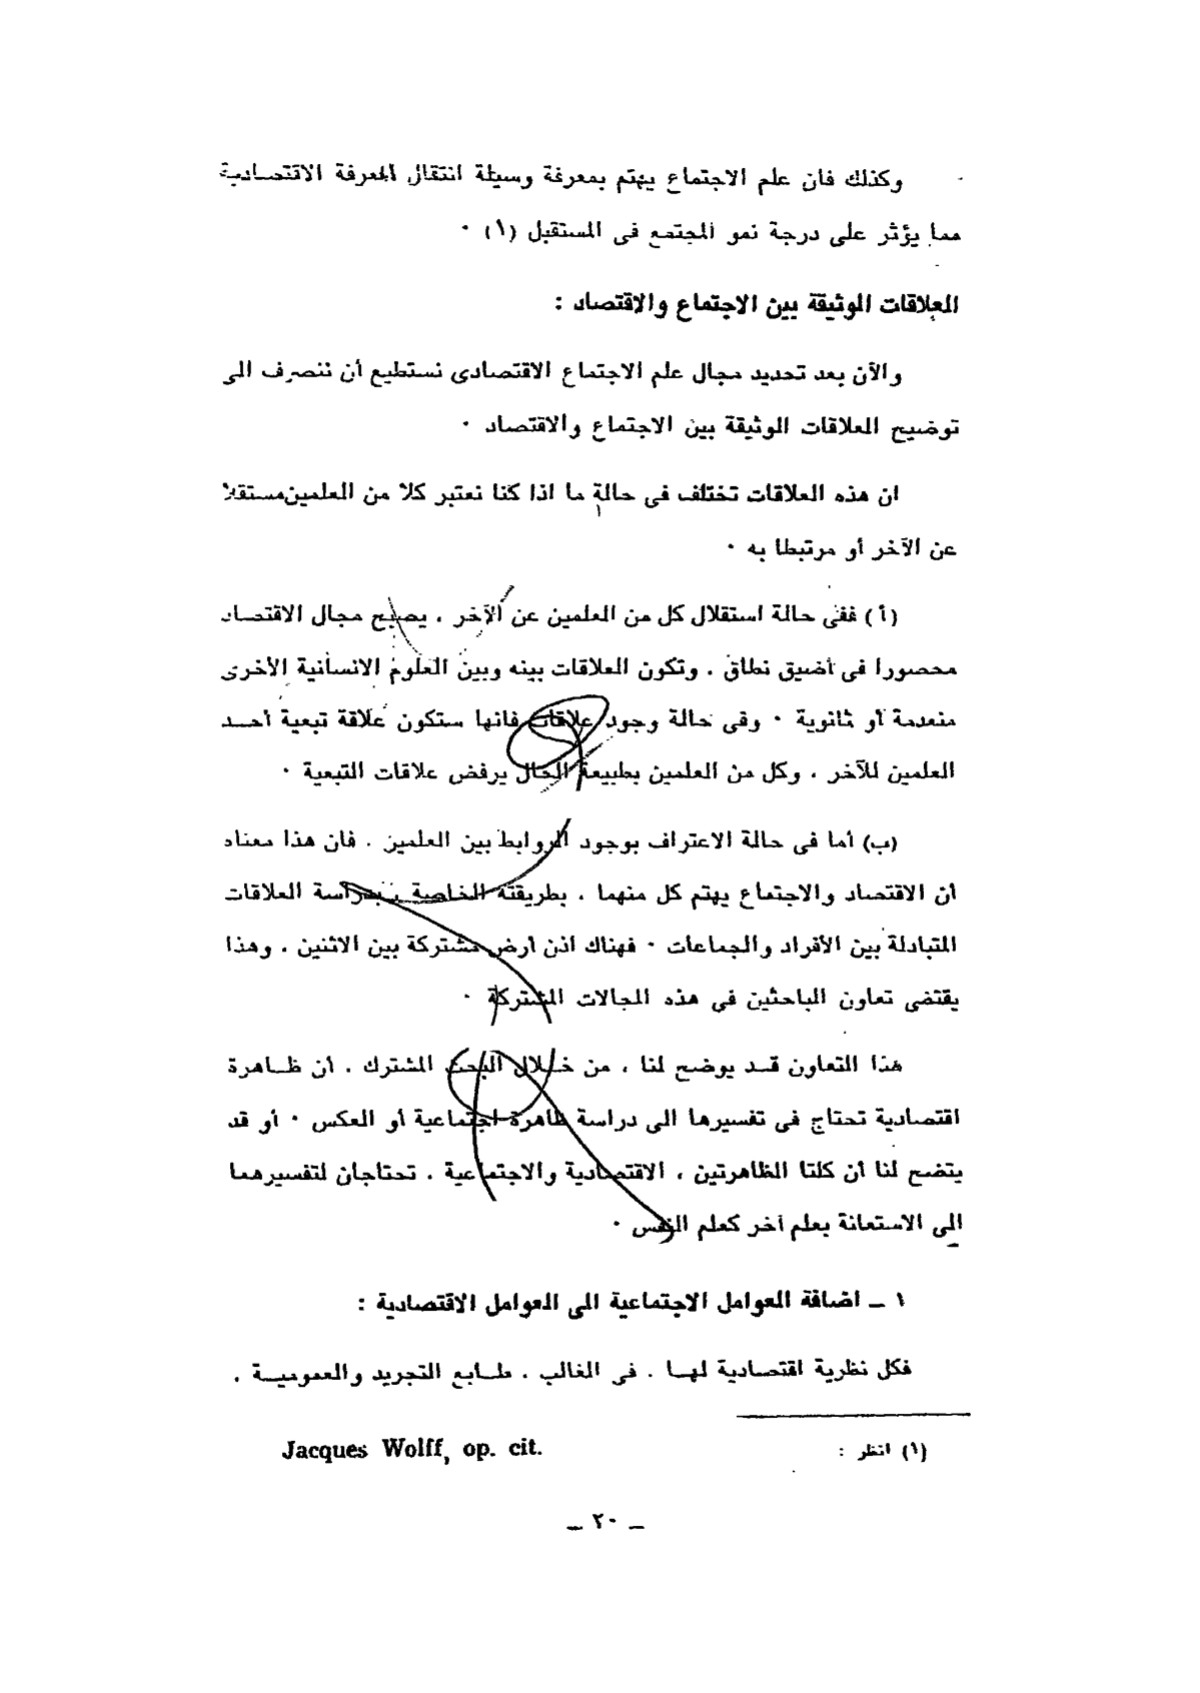 وكذلك فان علم الاجتماع يهتم بمعرفة وسيلة انتقال المعرفة الاقتصادية
مما يؤثر على درجة نمو المجتمع فى المستقبل (١) ٠
العلاقات الوثيقة بين الاجتماع والاقتصاد :
والآن بعد تحديد مجال علم الاجتماع الاقتصادى نستطيع أن ننصرف الى
توضيح العلاقات الوثيقة بين الاجتماع والاقتصاد ٠
ان هذه العلاقات تختلف فى حالة ما اذا كنا نعتبر كلا من العلمين مستقلا
عن الآخر أو مرتبطا به ٠
(أ) ففى حالة استقلال كل من العلمين عن الآخر ، يصبح مجال الاقتصاد
محصورا فى أضيق نطاق ، وتكون العلاقات بينه وبين العلوم الانسانية الأخرى
منعدمة أو ثانوية ٠ وفى حالة وجود علاقات فانها ستكون علاقة تبعية أحــد
العلمين للآخر ، وكل من العلمين بطبيعة الحال يرفض علاقات التبعية ٠
(ب) أما فى حالة الاعتراف بوجود الروابط بين العلمين ، فان هذا معناه
أن الاقتصاد والاجتماع يهتم كل منهما ، بطريقته الخاصة ، بدراسة العلاقات
المتبادلة بين الأفراد والجماعات ٠ فهناك اذن أرض مشتركة بين الاثنين ، وهذا
يقتضى تعاون الباحثين فى هذه المجالات المشتركة ٠
هذا التعاون قــد يوضح لنا ، من خــلال البحث المشترك ، أن ظــاهرة
اقتصادية تحتاج فى تفسيرها الى دراسة ظاهرة اجتماعية أو العكس ٠ أو قد
يتضح لنا أن كلتا الظاهرتين ، الاقتصادية والاجتماعية ، تحتاجان لتفسيرهما
الى الاستعانة بعلم آخر كعلم النفس ٠
١ ــ اضافة العوامل الاجتماعية الى العوامل الاقتصادية :
فكل نظرية اقتصادية لهــا ، فى الغالب ، طــابع التجريد والعموميــة ،
(١) انظر : Jacques Wolff, op. cit.
ــ ٢٠ ــ